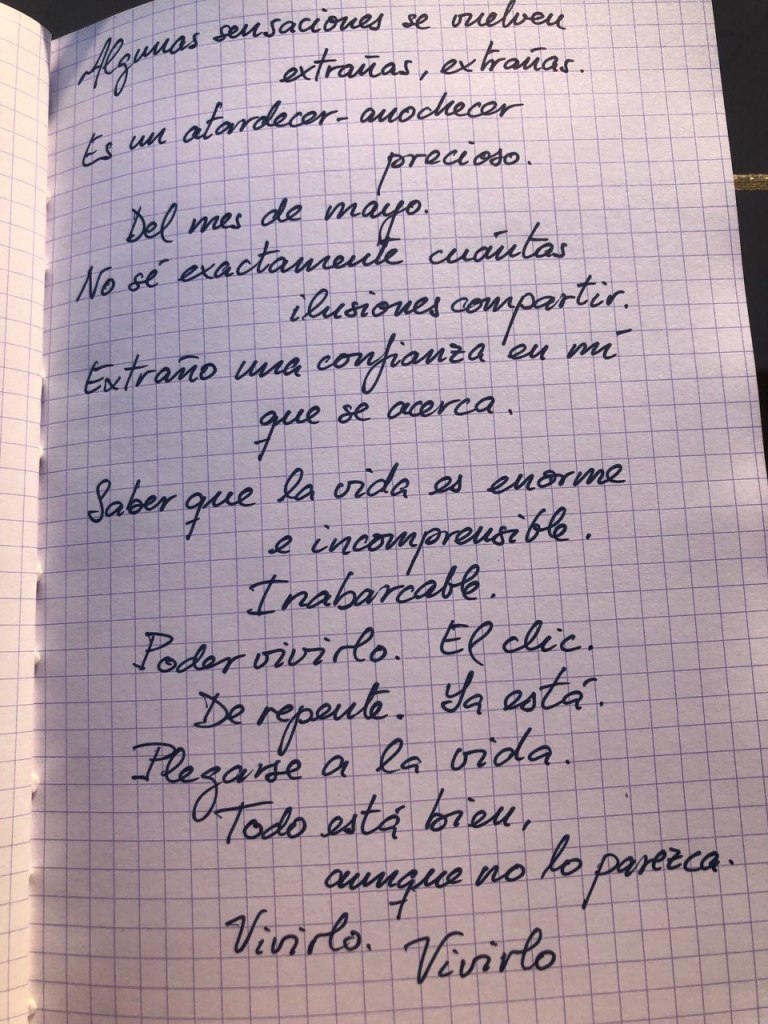 Algunas sensaciones se vuelven
extrañas, extrañas.
Es un atardecer - anochecer
precioso.
Del mes de mayo.
No sé exactamente cuántas
ilusiones compartir.
Extraño una confianza en mí
que se acerca.
Saber que la vida es enorme
e incomprensible.
Inabarcable.
Poder vivirlo. El clic.
De repente. Ya está.
Plegarse a la vida.
Todo está bien,
aunque no lo parezca.
Vivirlo. Vivirlo